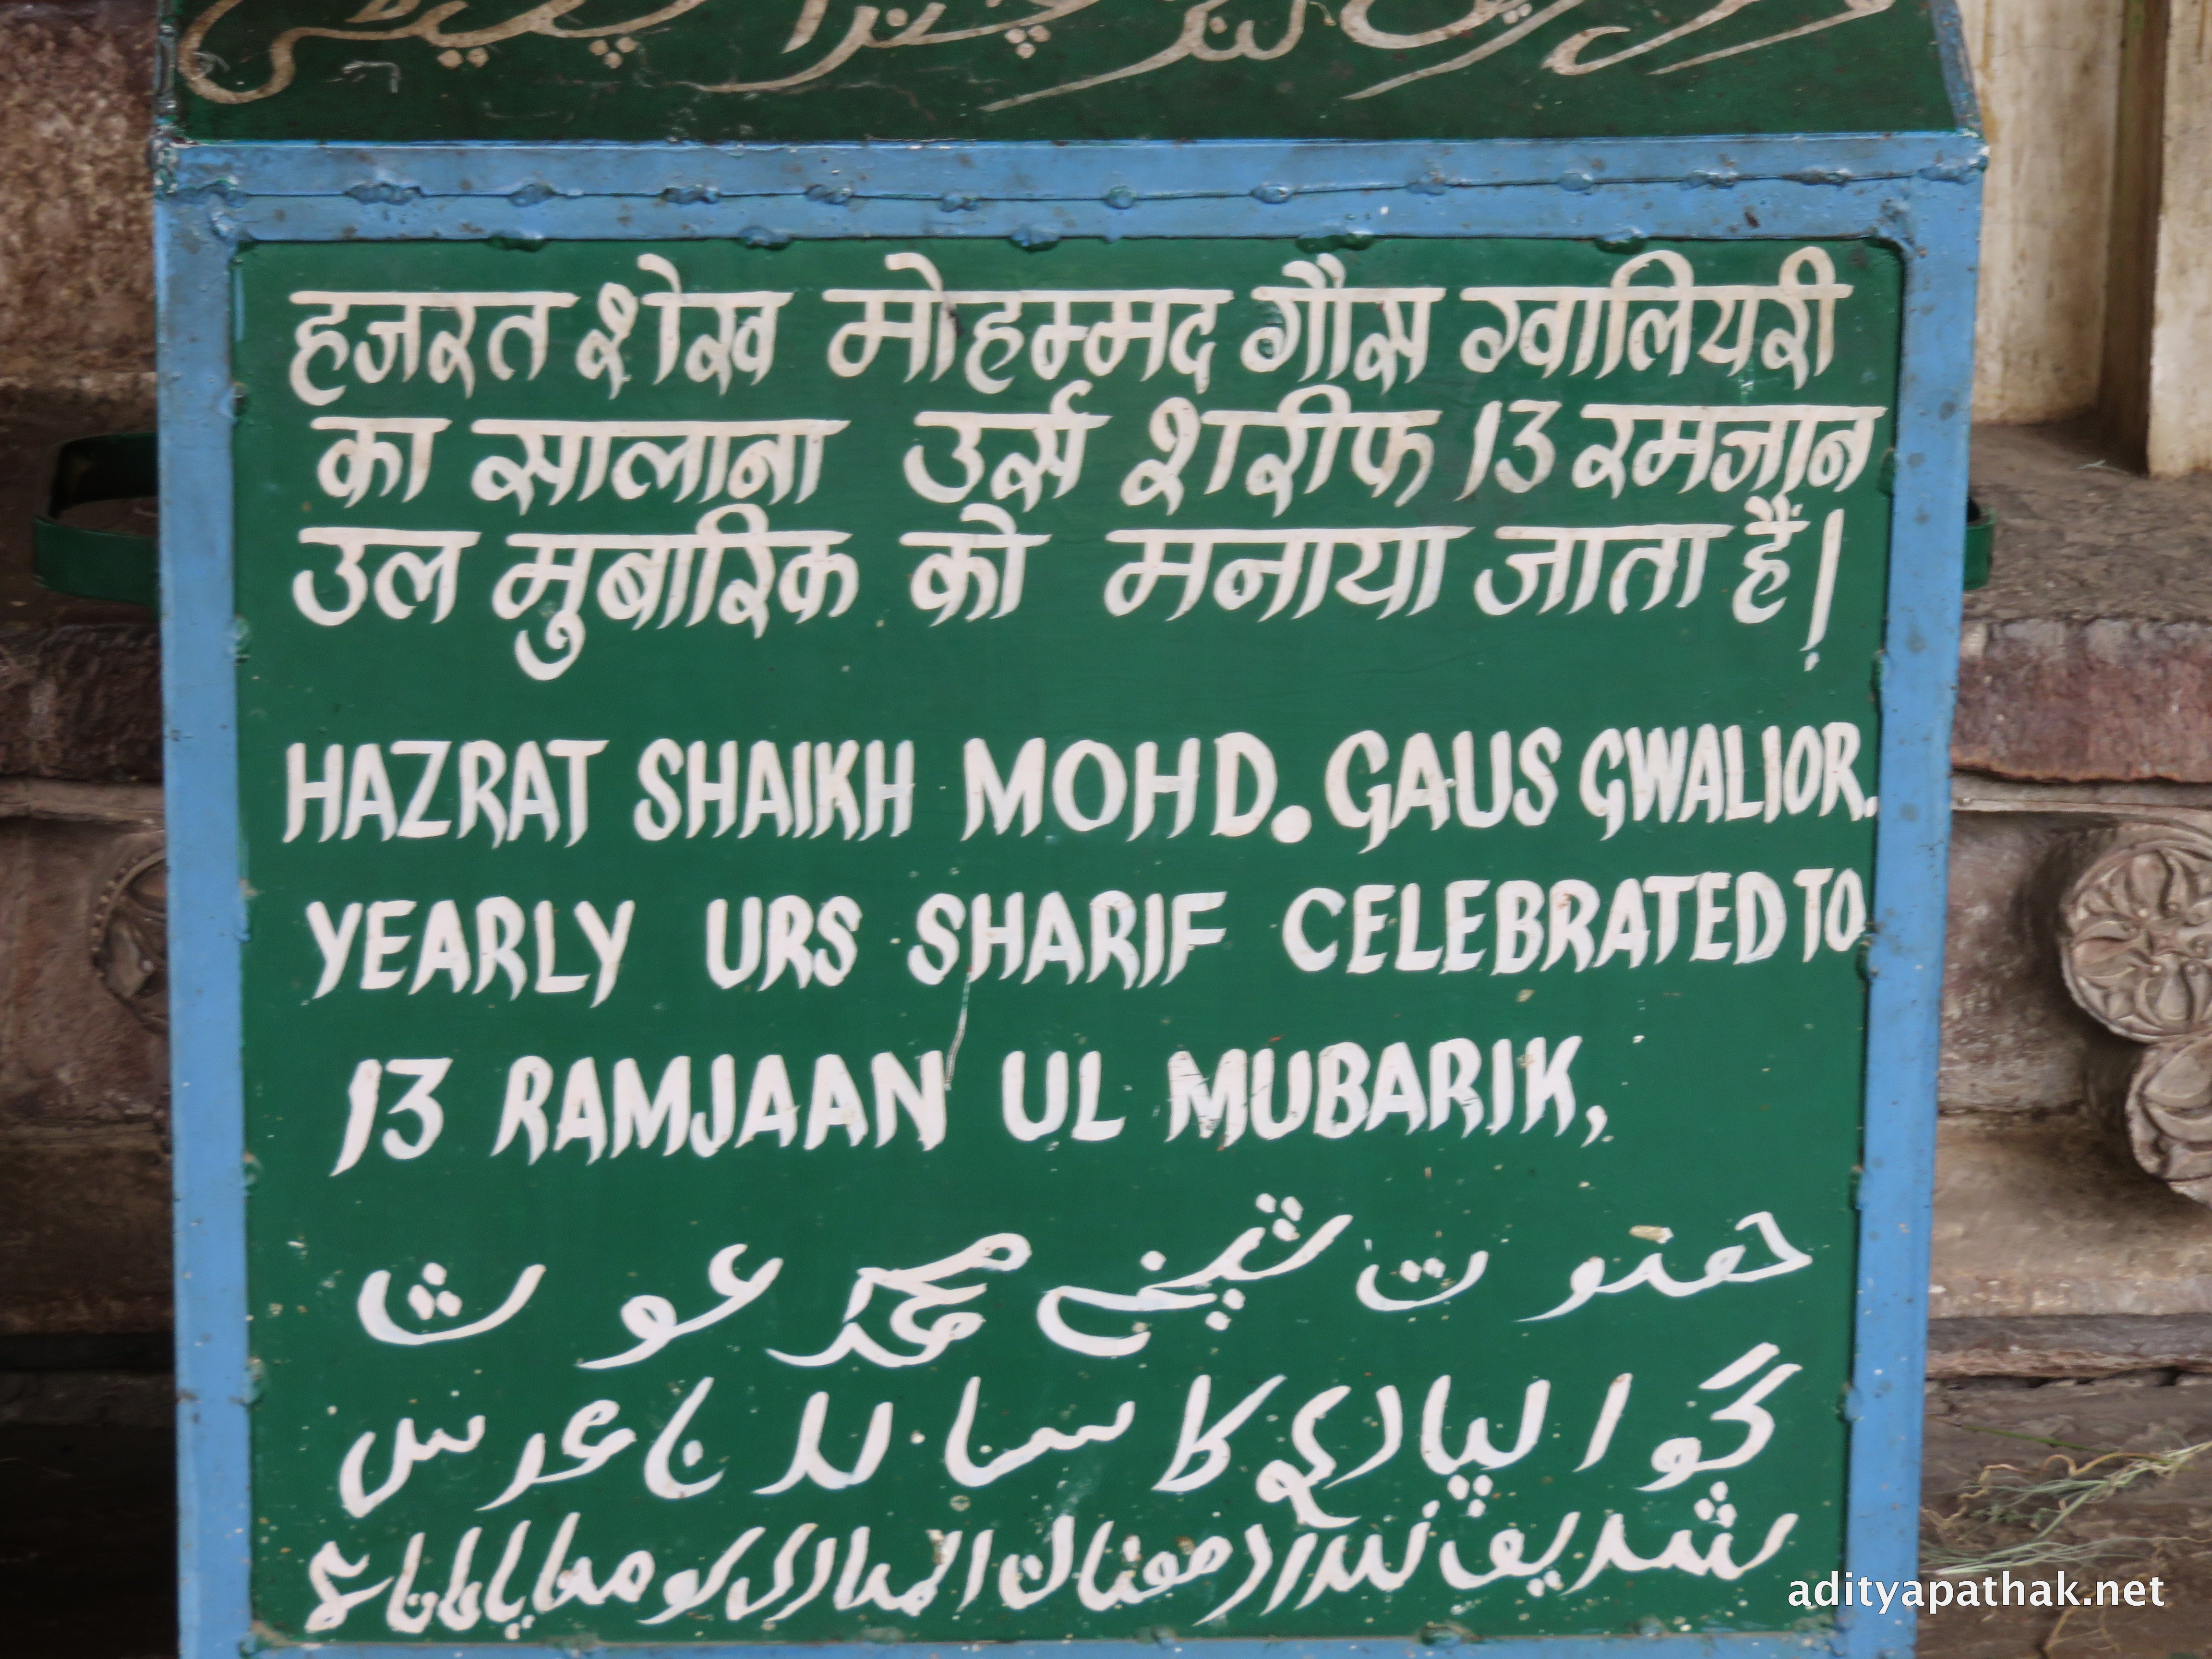 हजरत शेख मोहम्मद गौस ग्वालियरी
का सालाना उर्स शरीफ 13 रमजान
उल मुबारिक को मनाया जाता हैं।
HAZRAT SHAIKH MOHD. GAUS GWALIOR.
YEARLY URS SHARIF CELEBRATED TO
13 RAMJAAN UL MUBARIK,
شیخ محمد غوث
گوالیاری کا سالانا عرس
شریف
adityapathak.net